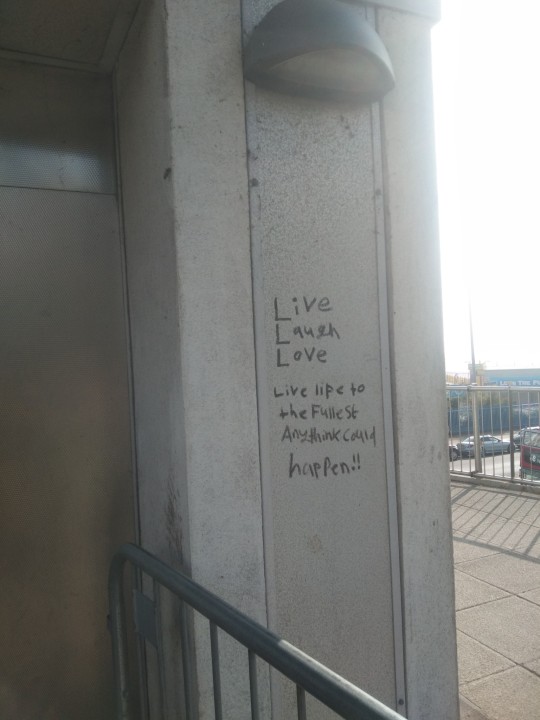 Live
Laugh
Love
Live lipe to
the Fullest
Anythink could
happen!!